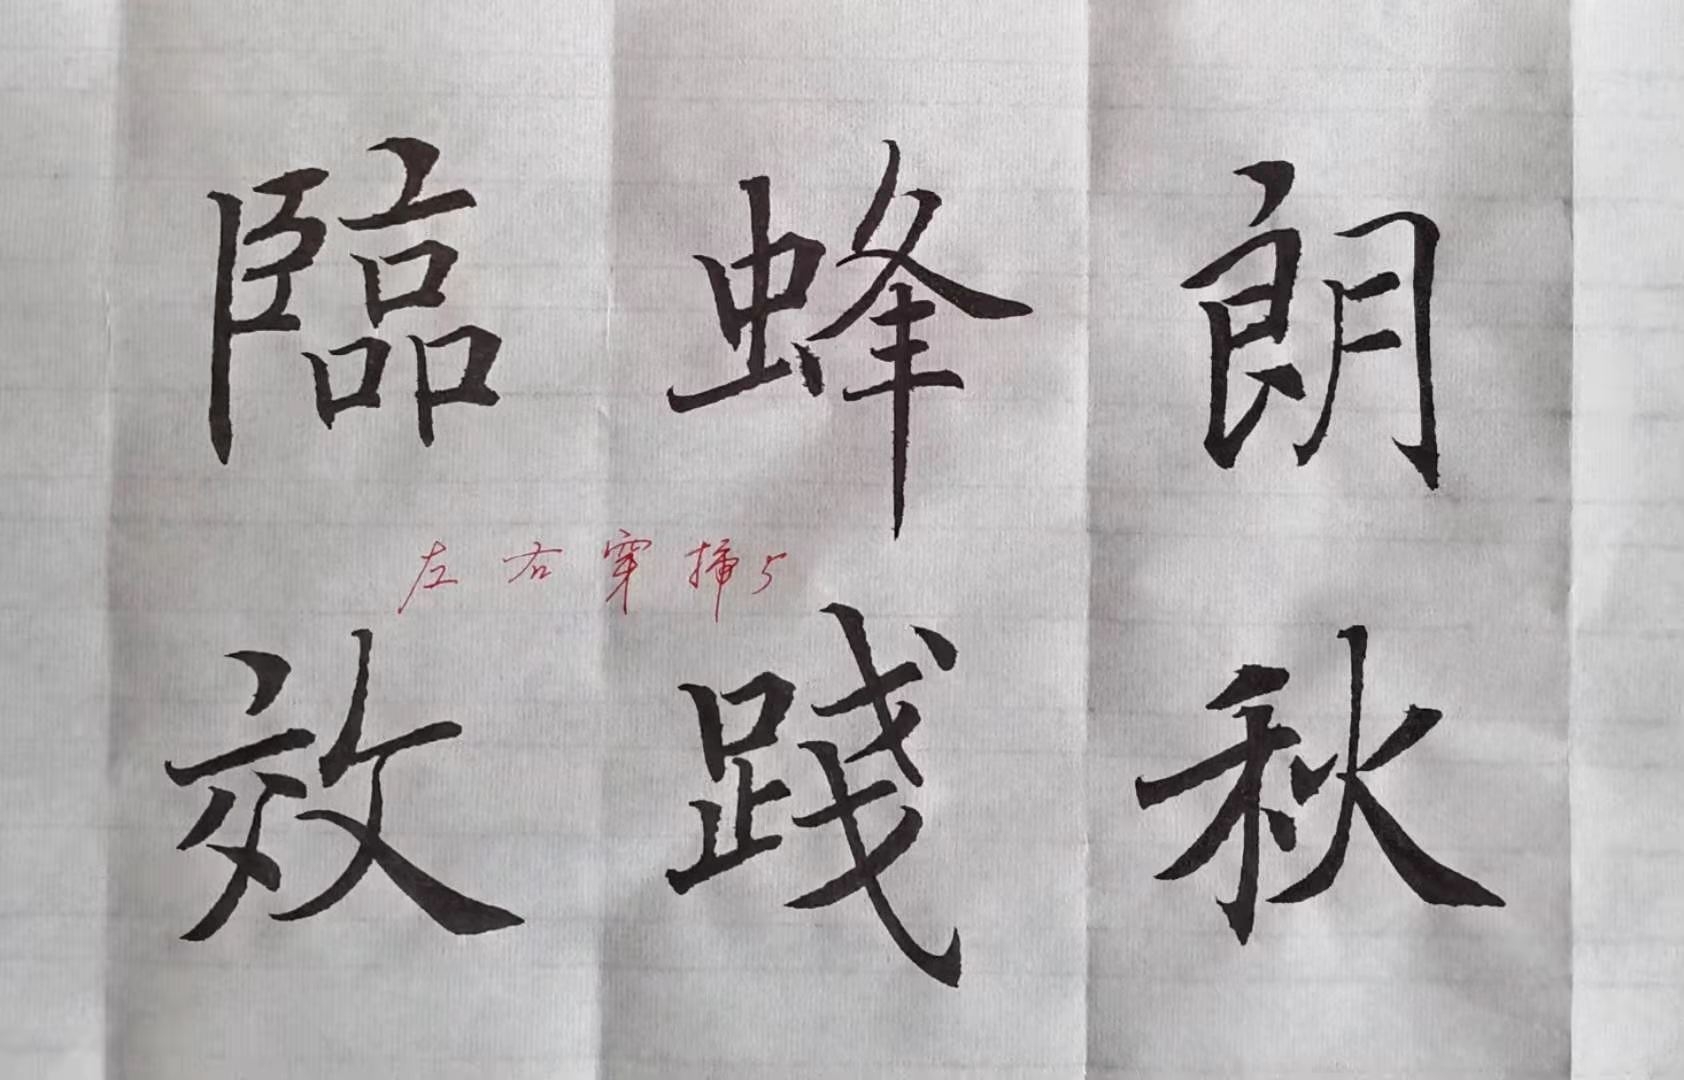 臨蜂朗
左右穿插5
效踐秋